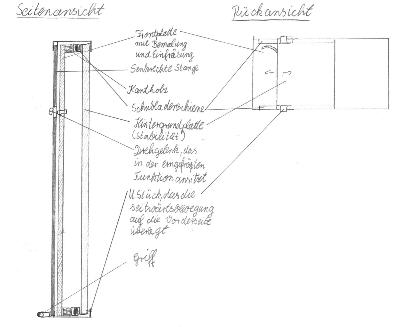 Seitenansicht
Rückansicht
Frontplatte
mit Bemalung
und Einfräsung
Senkrechte Stange
Kantholz
Schubladenschiene
Hintergrundplatte
(Stabilität)
Drehgelenk, das
in der eingefrästen
Funktion
U Stück, das die
seitwärtsbewegung
auf die Vorderseite
überträgt
Griff